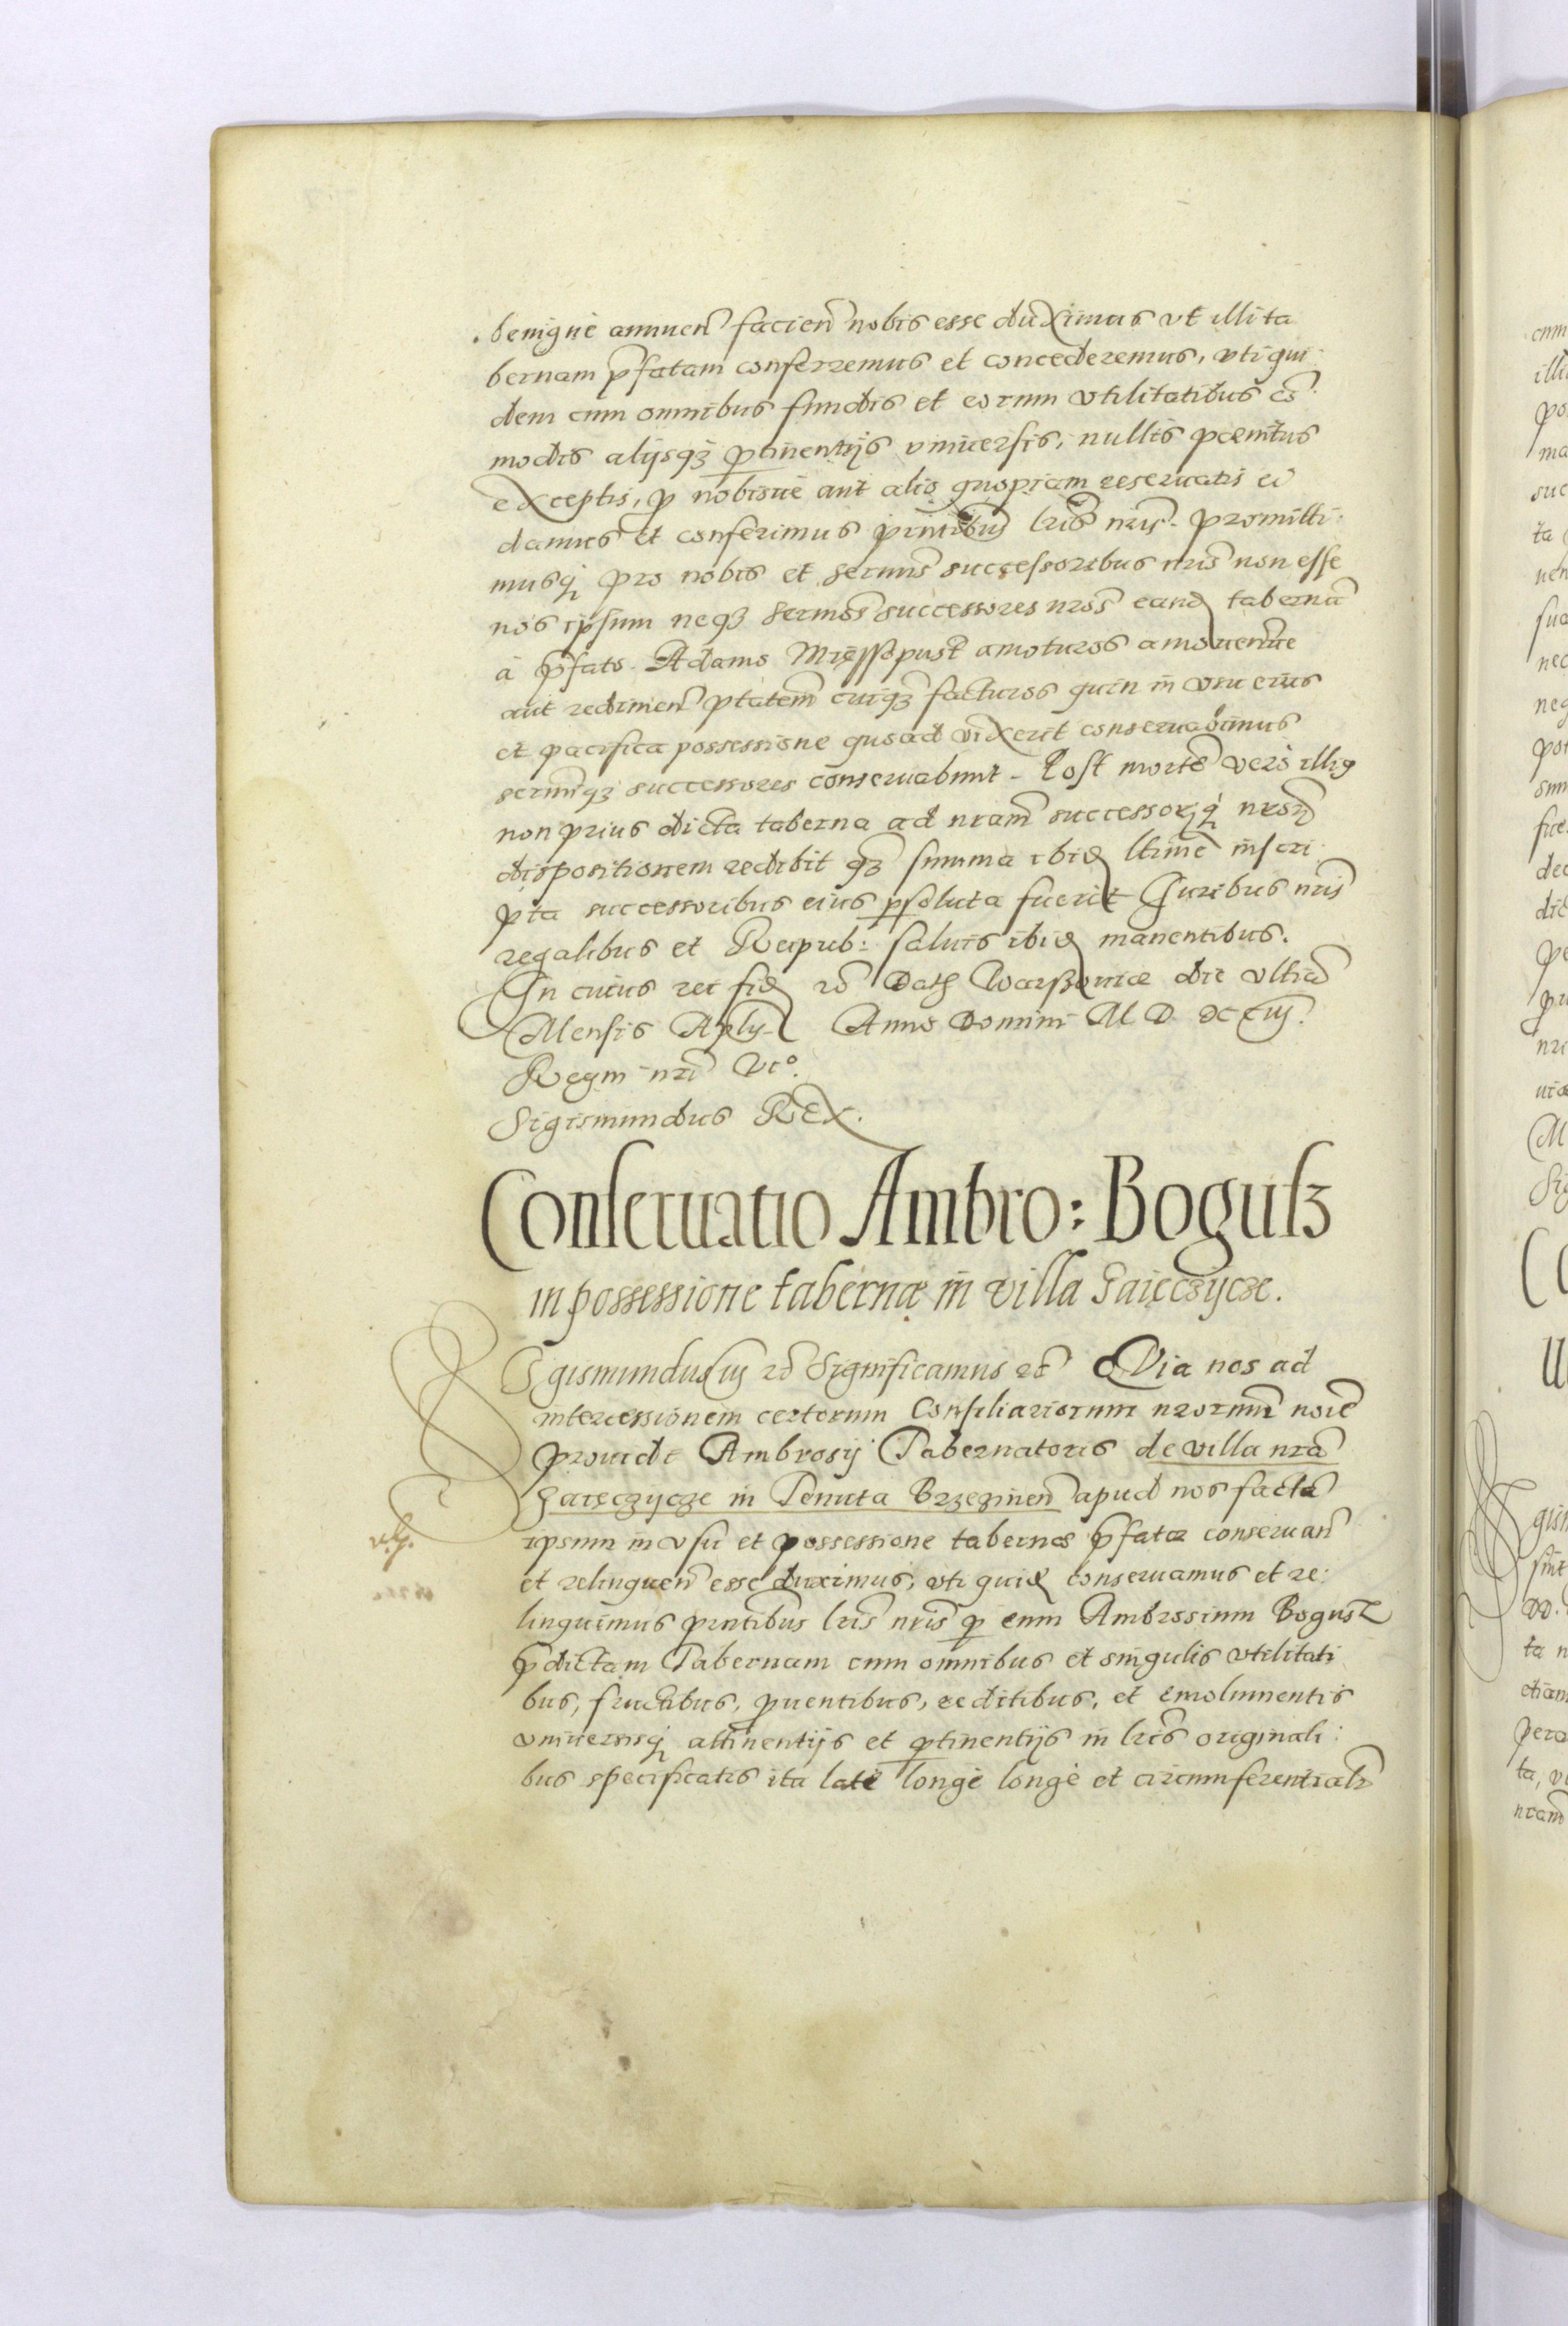 benigne annuen̄ facien̄ nobis esse duximus vt illi ta
bernam p̄fatam conferremus et concederemus, vti qui
dem cum omnibus fundis et eorum vtilitatibus cō
modis alijsqꝫ ꝑtinentijs vniuersis, nullis poenitus
exceptis, ꝓ nobisue aut alio quopiam reseruatis ei
damus et conferimus pn̄tibus lris nr̄is. Promitti
musqꝫ pro nobis et serm̄is successoribus nr̄is non esse
nos ipsum neqꝫ serm̄os successores nr̄os eand tabernā
à p̄fato Adamo Mięssopust amoturos amouen̄ue
aut redimen̄ ptātem cuiqꝫ facturos quin in vsu eius
et pacifica possessione quoad vixerit conseruabimus
serm̄iqꝫ successores conseruabunt. Post mortē verò illiꝯ
non prius dicta taberna ad nr̄am successorqꝫ nr̄oꝝ
dispositionem redibit qꝫ summa ibid ltīme inscri
pta successoribus eius ꝑsoluta fuerit Juribus nr̄is
regalibus et Reipub: saluis ibid manentibus.
In cuius rei fid rō Datꝭ Warszouiæ die vltiā
Mensis Aplis Anno Domini M D XCiij.
Regni nr̄i Vto.
Sigismundus REX.
Conseruatio Ambro: Bogusz
in possessione tabernæ in villa Gaięczycze.
Sigismundus iij rō Significamus etc̄ QVia nos ad
intercessionem certorum Consiliariorum nrorum noīe
prouidi Ambrosij Tabernatoris de villa nrā
Gaięczycze in Tenuta Brzezinen̄ apud nos factā
ipsum in vsu et possessione tabernæ p̄fatæ conseruan̄
et relinquen̄ esse duximus, vti quid conseruamus et re:
linquimus pn̄tibus lris nr̄is ꝑ eum Ambrosium Bogusz
p̄dictam Tabernam cum omnibus et singulis vtilitati
bus, fructibus, ꝓuentibus, reditibus, et emolumentis
vniuersisqꝫ attinentijs et ꝑtinentijs in lris originali:
bus specificatis ita latè longè longè et circumferentialr̄